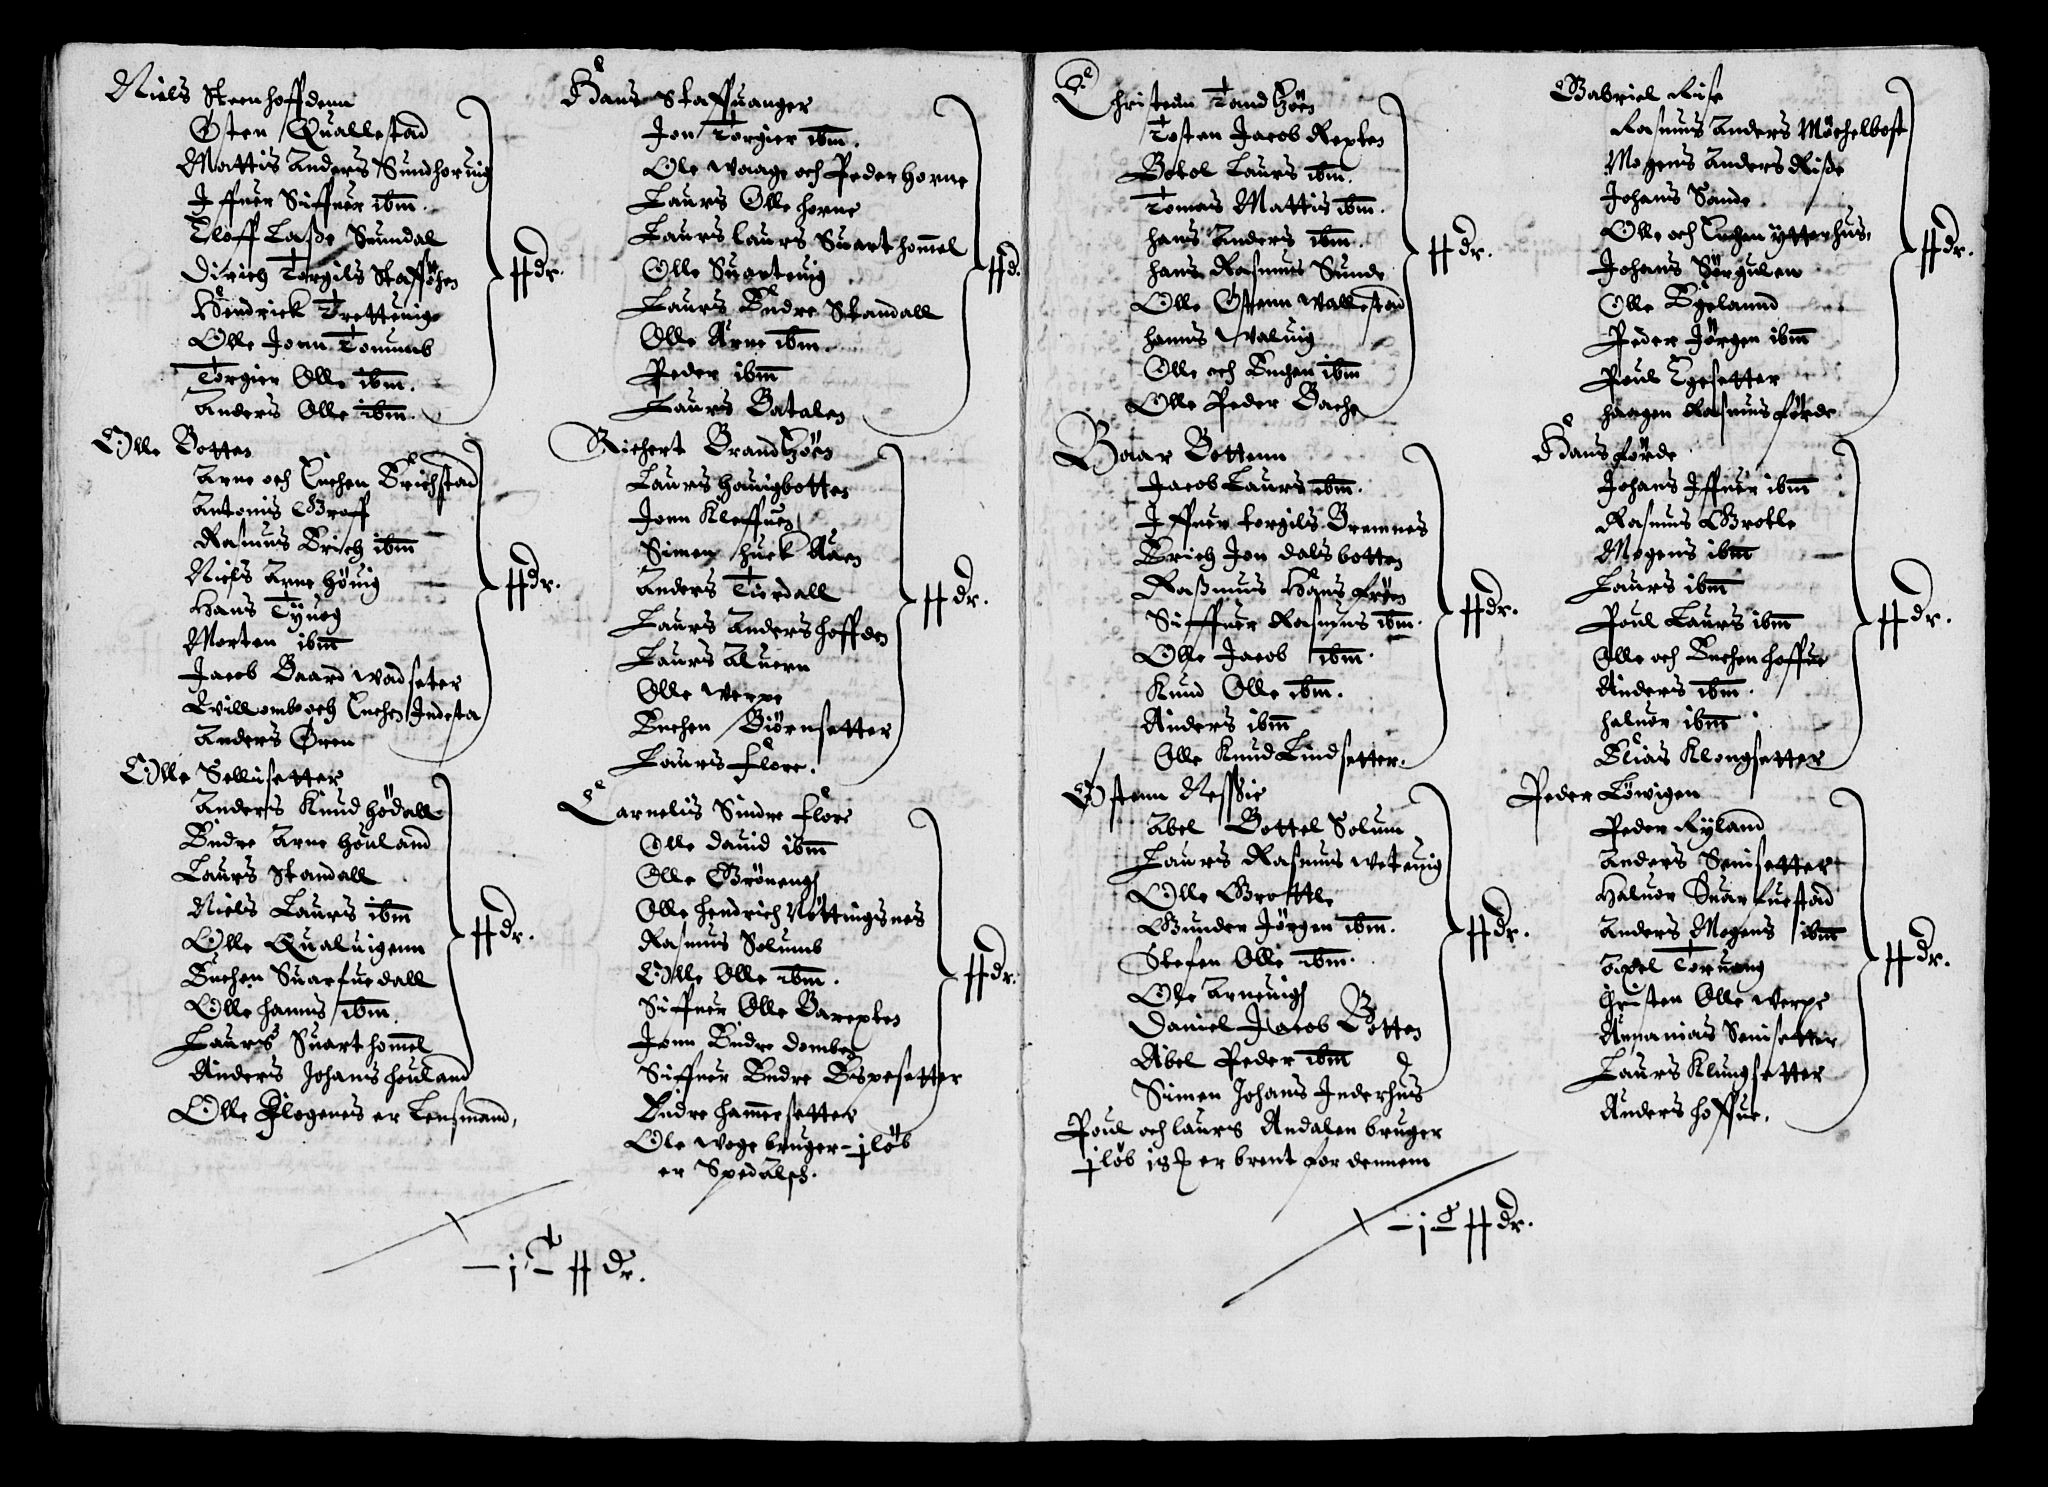 Niels Steenhoffdenn
Østen Quallestad
Mattis Anders Sundhoruig
Iffuer Siffuer ibm.
Eloff Laße Sunndal
Dirich Torgils Staffshen
Hendrick Tretteuigh
Olle Jonn Tomumb
Torgier Olle ibm.
Anders Olle ibm.
H dr.
Olle Botten
Arne och Enchen Erichstad
Antonis Groff
Rasmus Erich ibm
Niels Arne Höuig
Hans Tyueg
Morten ibm
Jacob Baard Wadseter
Willomb och Enchen Indesta
Anders Øren
H dr.
Olle Sellusetter
Anders Knud Hödall
Endre Arne Houland
Laurs Standall
Niels Laurs ibm
Olle Qualuigenn
Enchen Suarfuedall
Olle Hanns ibm
Laurs Suarthommel
Anders Johans Houland
Olle Flogenes er Lensmand,
H dr.
Hans Staffuanger
Jon Torgier ibm.
Ole Waage och Peder Horne
Laurs Olle Horne
Laurs Laurs Suarthommel
Olle Suarteuig
Laurs Endre Standall
Olle Arne ibm.
Peder ibm
Laurs Batalen
H d.
Richert Brandhöen
Laurs Houigbotten
Jonn Kleffuen
Simen Huck Aaen
Anders Tiordall
Laurs Anders Hoffden
Laurs Aluern
Olle Werpe
Enchen Biörnsetter
Laurs Flore.
H dr.
Carnelis Sindre Flore
Olle Dauid ibm
Olle Gröneng
Olle Hendrich Nöttingsnes
Rasmus Solumb
Olle Olle ibm.
Siffuer Olle Barexten
Jonn Endre Domben
Siffuer Endre Espesetter
Endre Hammersetter
Ole Woge bruger - j löb
er Spedalsch.
H dr.
- i T - H dr.
Christenn Tandhöen
Tosten Jacob Rexten
Botol Laurs ibm.
Tomas Mattis ibm.
Hans Anders ibm.
Hans Rasmus Sunde
Olle Østenn Wallestad
Hanns Waluig
Olle och Enchen ibm
Olle Peder Bache
H dr.
Baar Bottenn
Jacob Laurs ibm.
Iffuer Torgils Bremnes
Erich Jon Dalsbotten
Raßmus Hans Fröen
Siffuer Rasmus ibm.
Olle Jacob ibm.
Knud Olle ibm.
Anders ibm
Olle Knud Lindsetter.
H dr.
Østenn Neßie
Abel Bottel Solum
Laurs Rasmus Weteuig
Olle Grottle
Gunder Jörgen ibm.
Stefen Olle ibm.
Ole Arneuig
Daniel Jacob Botten
Abel Peder ibm
Simen Johans Inderhus
Poul och Laurs Andalen bruger
j löb er brent for dennem
H dr.
Gabriel Rise
Rasmus Anders Möchelbost
Mogens Anders Riße
Johans Sande
Olle och Enchen Ytterhus,
Johans Sörgulen
Olle Egelannd
Peder Jörgen ibm
Poul Egesetter
Haagen Rasmus Förde
H dr.
Hans Förde
Johans Iffuer ibm
Rasmus Grotle
Mogens ibm
Laurs ibm
Poul Laurs ibm
Olle och Enchen Hoffue
Anders ibm.
Haluor ibm
Elias Klongsetter
H dr.
Peder Löwigen
Peder Ryland
Anders Senisetter
Haluor Suarfuestad
Anders Mogens ibm
Axel Toruang
Christen Olle Werpe
Annanias Senisetter
Laurs Klungsetter
Anders Hoffue.
H dr.
- i 8 H dr.